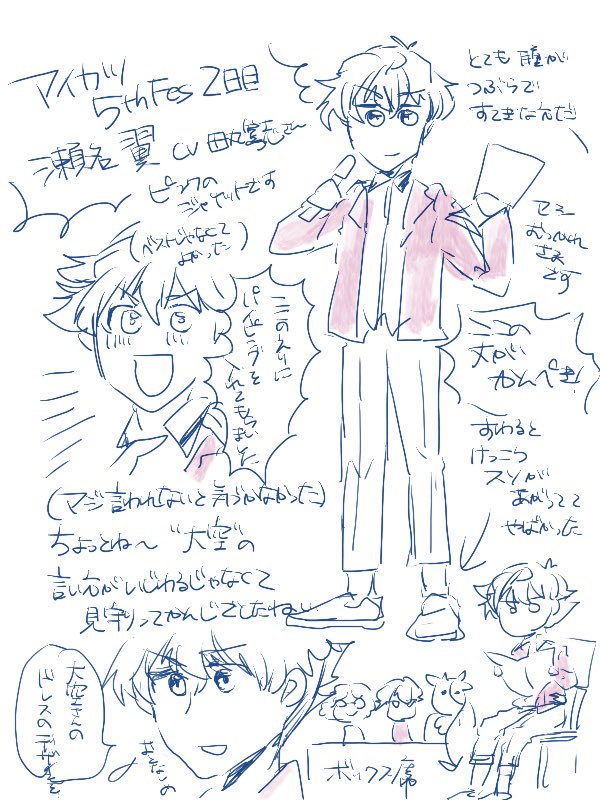 アイカツ
5thFes 2日目
瀬名 翼 CV 田丸篤志さん
ピンクの
ジャケットです
(ベストじゃなくて
よかった)
とても瞳が
つぶらで
すてきなんだ
です
ここの
丈が
かんぺき!
すわると
けっこう
スソが
あがってて
やばかった
ここのえりに
パイピングを
入れてもらいました
(マジ言われないと気づかなかった)
ちょっとね〜 "大空"の
言い方がいじわるじゃなくて
見守りってかんじでしたね…
大空さんの
ドレスのデザインを
おとなの
ボックス席